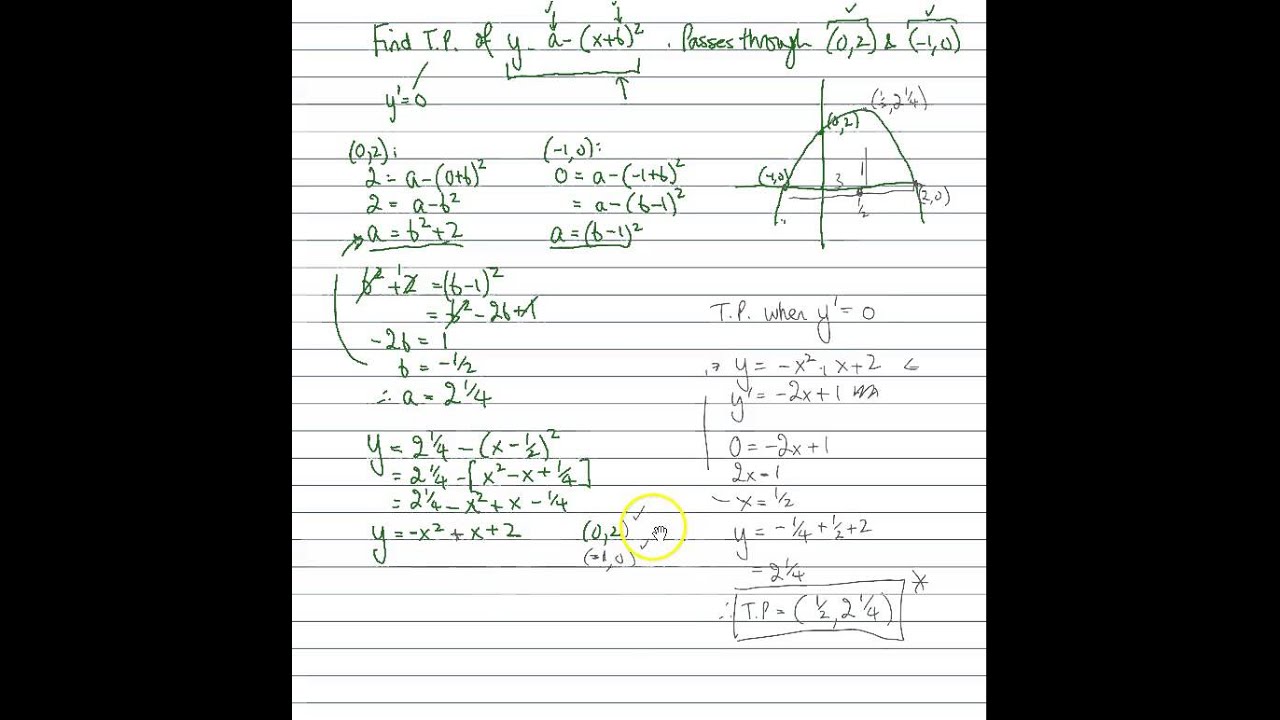 Find T.P. of y = a-(x+b)². Passes through (0,2) & (-1,0)
y'=0
(0,2):
2 = a-(0+b)²
2 = a-b²
a = b²+2
(-1,0):
0 = a-(-1+b)²
= a-(b-1)²
a = (b-1)²
b² + 2 = (b-1)²
1
= b² - 2b + 1
-2b = 1
b = -1/2
∴ a = 2 1/4
y = 2 1/4 - (x - 1/2)²
= 2 1/4 - [x² - x + 1/4]
= 2 1/4 - x² + x - 1/4
y = -x² + x + 2
(0,2) ✓
(-1,0) ✓
(1/2, 2 1/4)
(0,2)
(-1,0)
3
1
1/2
(2,0)
T.P. when y' = 0
y = -x² + x + 2
y' = -2x + 1
0 = -2x + 1
2x = 1
x = 1/2
y = -1/4 + 1/2 + 2
= 2 1/4
∴ T.P = (1/2, 2 1/4)